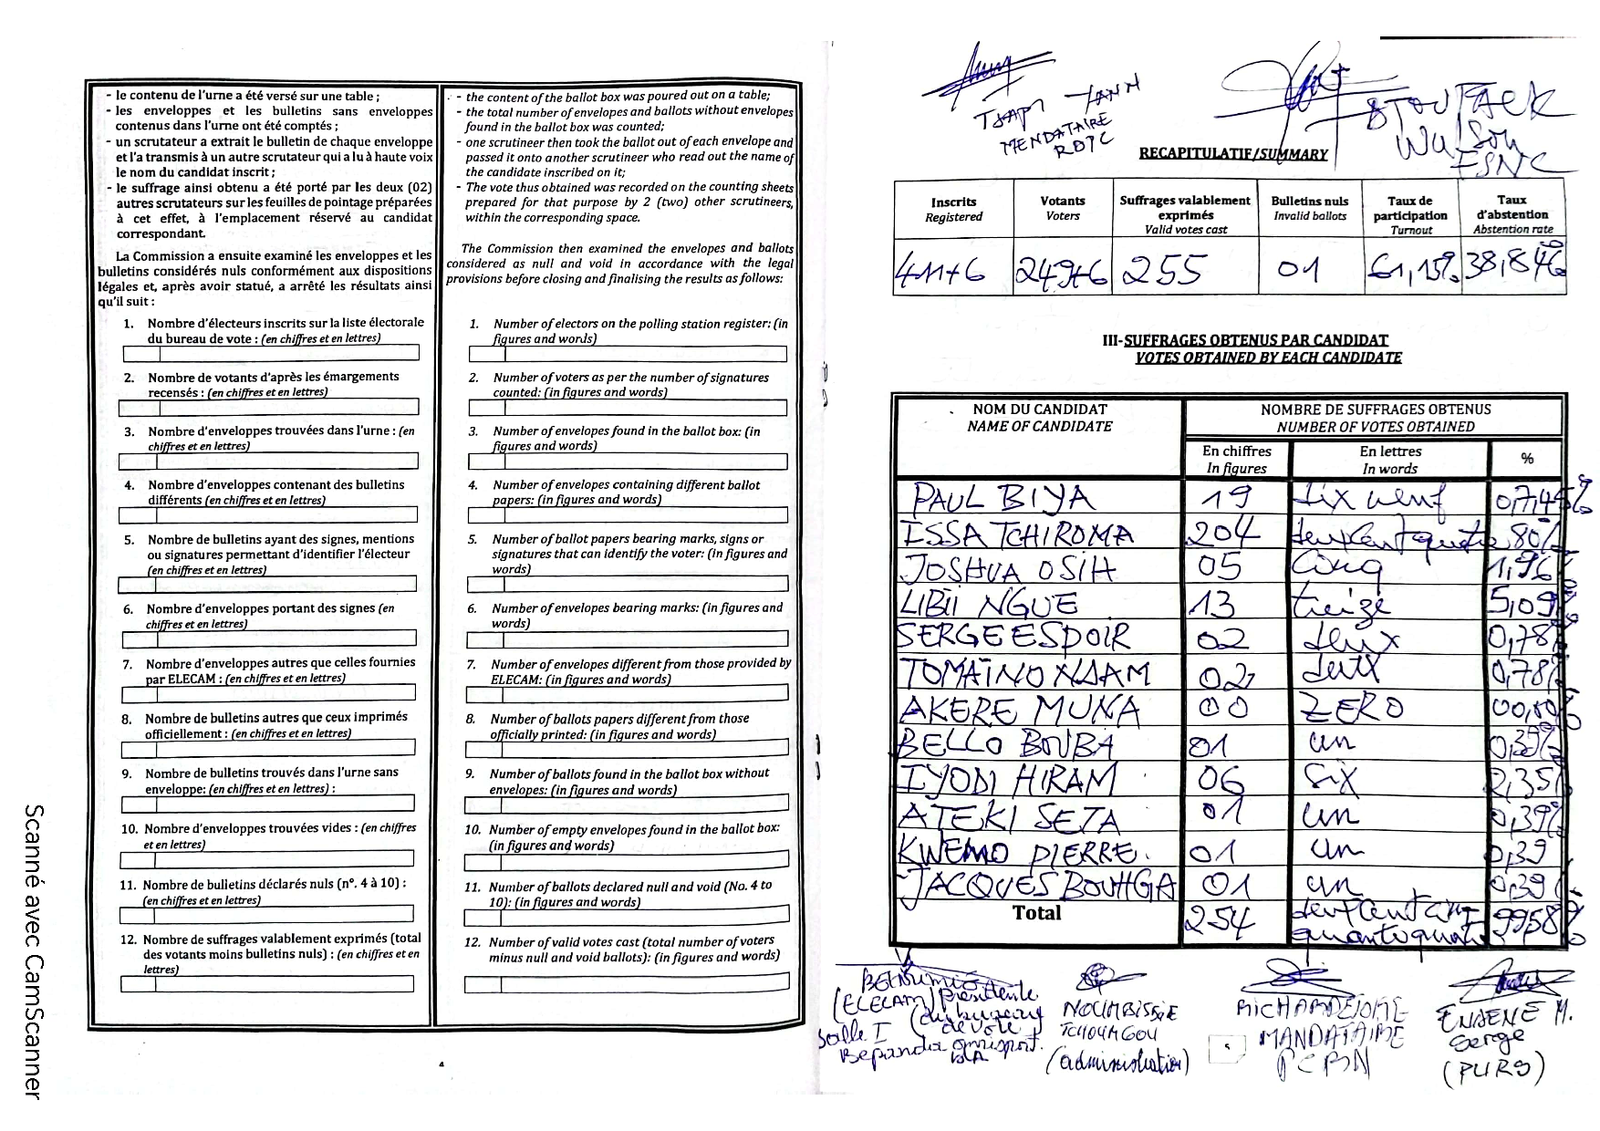 - le contenu de l'urne a été versé sur une table ;
- les enveloppes et les bulletins sans enveloppes
contenus dans l'urne ont été comptés ;
- un scrutateur a extrait le bulletin de chaque enveloppe
et l'a transmis à un autre scrutateur qui a lu à haute voix
le nom du candidat inscrit ;
- le suffrage ainsi obtenu a été porté par les deux (02)
autres scrutateurs sur les feuilles de pointage préparées
à cet effet, à l'emplacement réservé au candidat
correspondant.
La Commission a ensuite examiné les enveloppes et les
bulletins considérés nuls conformément aux dispositions
légales et, après avoir statué, a arrêté les résultats ainsi
qu'il suit :
1. Nombre d'électeurs inscrits sur la liste électorale
du bureau de vote : (en chiffres et en lettres)
2. Nombre de votants d'après les émargements
recensés : (en chiffres et en lettres)
3. Nombre d'enveloppes trouvées dans l'urne : (en
chiffres et en lettres)
4. Nombre d'enveloppes contenant des bulletins
différents (en chiffres et en lettres)
5. Nombre de bulletins ayant des signes, mentions
ou signatures permettant d'identifier l'électeur
(en chiffres et en lettres)
6. Nombre d'enveloppes portant des signes (en
chiffres et en lettres)
7. Nombre d'enveloppes autres que celles fournies
par ELECAM : (en chiffres et en lettres)
8. Nombre de bulletins autres que ceux imprimés
officiellement : (en chiffres et en lettres)
9. Nombre de bulletins trouvés dans l'urne sans
enveloppe: (en chiffres et en lettres) :
10. Nombre d'enveloppes trouvées vides : (en chiffres
et en lettres)
11. Nombre de bulletins déclarés nuls (n°. 4 à 10) :
(en chiffres et en lettres)
12. Nombre de suffrages valablement exprimés (total
des votants moins bulletins nuls) : (en chiffres et en
lettres)
- the content of the ballot box was poured out on a table;
- the total number of envelopes and ballots without envelopes
found in the ballot box was counted;
- one scrutineer then took the ballot out of each envelope and
passed it onto another scrutineer who read out the name of
the candidate inscribed on it;
- The vote thus obtained was recorded on the counting sheets
prepared for that purpose by 2 (two) other scrutineers,
within the corresponding space.
The Commission then examined the envelopes and ballots
considered as null and void in accordance with the legal
provisions before closing and finalising the results as follows:
1. Number of electors on the polling station register: (in
figures and words)
2. Number of voters as per the number of signatures
counted: (in figures and words)
3. Number of envelopes found in the ballot box: (in
figures and words)
4. Number of envelopes containing different ballot
papers: (in figures and words)
5. Number of ballot papers bearing marks, signs or
signatures that can identify the voter: (in figures and
words)
6. Number of envelopes bearing marks: (in figures and
words)
7. Number of envelopes different from those provided by
ELECAM: (in figures and words)
8. Number of ballots papers different from those
officially printed: (in figures and words)
9. Number of ballots found in the ballot box without
envelopes: (in figures and words)
10. Number of empty envelopes found in the ballot box:
(in figures and words)
11. Number of ballots declared null and void (No. 4 to
10): (in figures and words)
12. Number of valid votes cast (total number of voters
minus null and void ballots): (in figures and words)
YANN
MENDATAIRE
RDPC
Wilson
FSNC
RECAPITULATIF/SUMMARY
Inscrits Votants Suffrages valablement exprimés Bulletins nuls Taux de participation Taux d'abstention
Registered Voters Valid votes cast Invalid ballots Turnout Abstention rate
411+6 249+6 255 01 61,15% 38,84%
III-SUFFRAGES OBTENUS PAR CANDIDAT
VOTES OBTAINED BY EACH CANDIDATE
NOM DU CANDIDAT NOMBRE DE SUFFRAGES OBTENUS
NAME OF CANDIDATE NUMBER OF VOTES OBTAINED
En chiffres En lettres %
In figures In words
PAUL BIYA 19 dix neuf 0,745%
ISSA TCHIROMA 204 deux cent quatre 80%
JOSHUA OSIH 05 cinq 1,96%
LIBII NGUE 13 treize 5,09%
SERGE ESPOIR 02 deux 0,78%
TOMAÏNO NDAM 02 deux 0,78%
AKERE MUNA 00 ZERO 00,00%
BELLO BOUBA 01 un 0,39%
IYODI HIRAM 06 six 2,35%
ATEKI SETA 01 un 0,39%
KWEMO PIERRE. 01 un 0,39
JACQUES BOUHGA 01 un 0,39%
Total 254 9958%
(ELECAM) Présidente
du bureau
de vote
Salle I
Bepanda omnisport.
NOUMBISSIE
TCHOUMGOU
(administration)
MANDATAIRE
PCRN
Serge
(PURS)
Scanné avec CamScanner